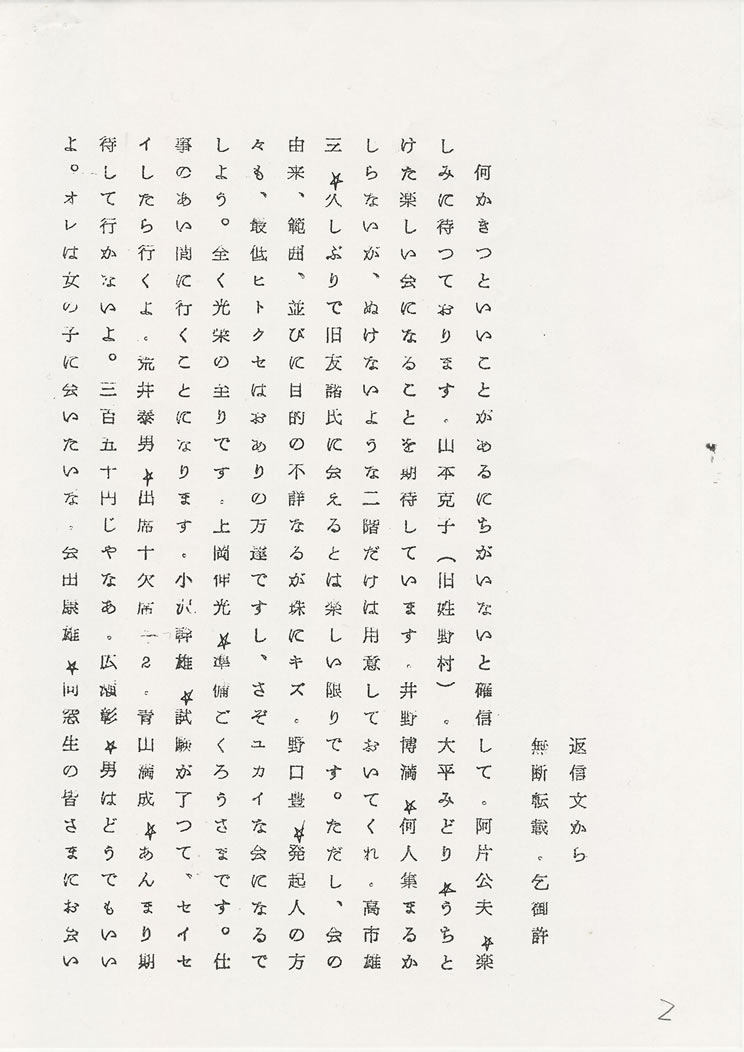 返信文から
無断転載。乞御許
何かきつといいことがあるにちがいないと確信して。阿片公夫☆楽
しみに待つております。山本克子(旧姓野村)。大平みどり☆うちと
けた楽しい会になることを期待しています。井野博満☆何人集まるか
しらないが、ぬけないような二階だけは用意しておいてくれ。高市雄
三☆久しぶりで旧友諸氏に会えるとは楽しい限りです。ただし、会の
由来、範囲、並びに目的の不詳なるが珠にキズ。野口豊☆発起人の方
々も、最低ヒトクセはおありの万達ですし、さぞユカイな会になるで
しよう。全く光栄の至りです。上岡伸光☆準備ごくろうさまです。仕
事のあい間に行くことになります。小沢幹雄☆試験が了つて、セイセ
イしたら行くよ。荒井泰男☆出席十欠席一2。青山満成☆あんまり期
待して行かないよ。三百五十円じやなあ。広瀬彰☆男はどうでもいい
よ。オレは女の子に会いたいな。会田康雄☆同窓生の皆さまにお会い
2